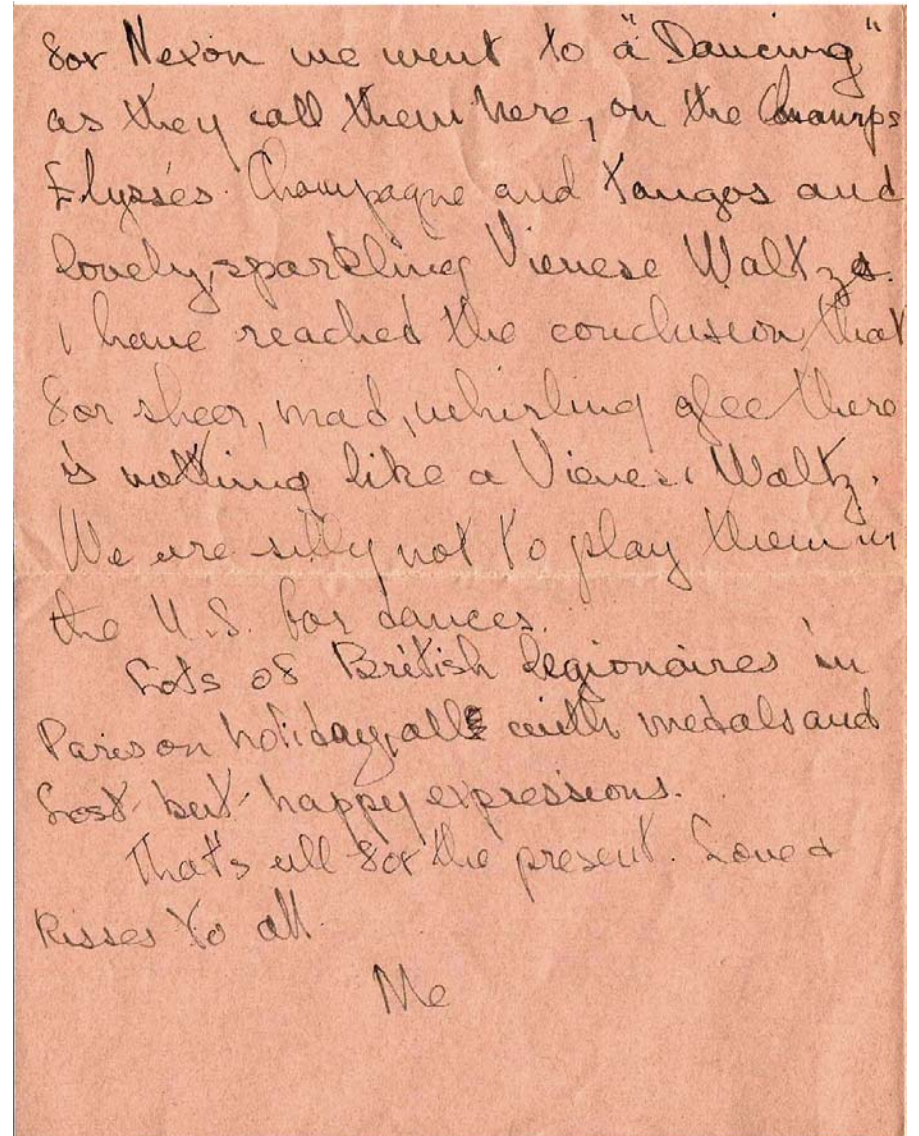 for Nexon we went to "a Dancing"
as they call them here, on the Champs
Elysées. Champagne and Tangos and
lovely, sparkling Vienese Waltzes.
I have reached the conclusion that
for sheer, mad, whirling glee there
is nothing like a Vienese Waltz.
We are silly not to play them in
the U.S. for dances.
Lots of British legionaires in
Paris on holiday, all with medals and
lost but happy expressions.
That's all for the present. Love &
Kisses to all.
Me